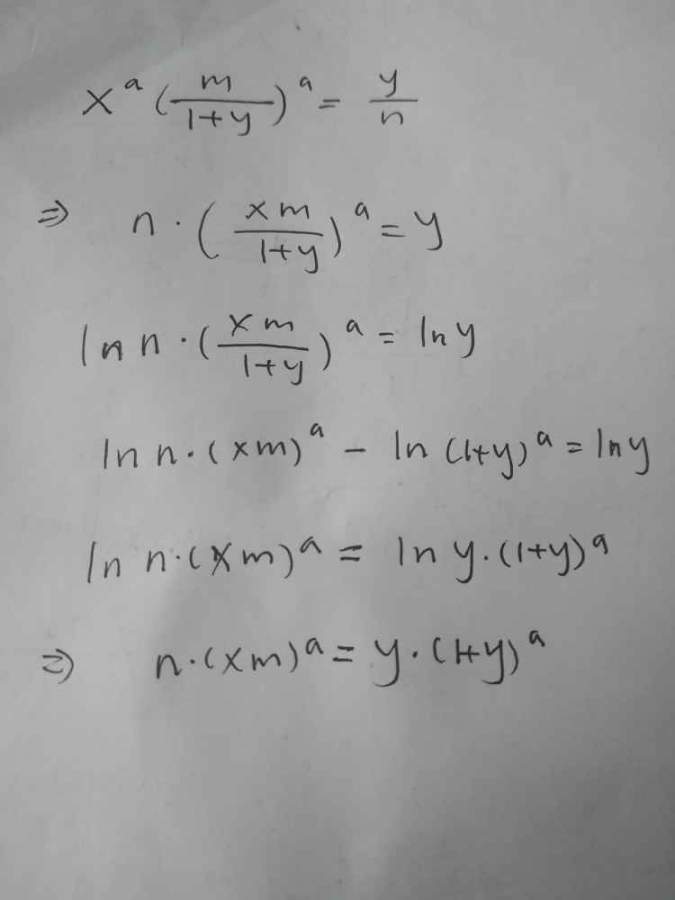 x^a (m/(1+y))^a = y/n
⇒ n · (xm/(1+y))^a = y
ln n · (xm/(1+y))^a = ln y
ln n · (xm)^a − ln (1+y)^a = ln y
ln n · (xm)^a = ln y · (1+y)^a
⇒ n · (xm)^a = y · (1+y)^a